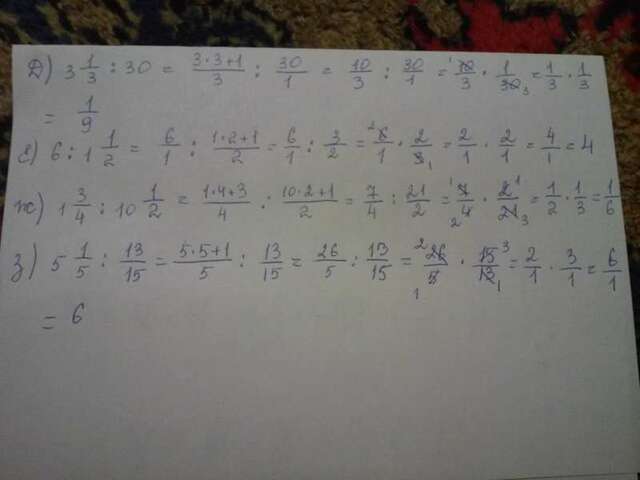 Д) 3 1/3 : 30 = (3·3+1)/3 : 30/1 = 10/3 : 30/1 = ¹10/3 · 1/30₃ = 1/3 · 1/3
= 1/9
е) 6 : 1 1/2 = 6/1 : (1·2+1)/2 = 6/1 : 3/2 = ²6/1 · 2/3₁ = 2/1 · 2/1 = 4/1 = 4
ж) 1 3/4 : 10 1/2 = (1·4+3)/4 : (10·2+1)/2 = 7/4 : 21/2 = ¹7/₂4 · 2¹/21₃ = 1/2 · 1/3 = 1/6
з) 5 1/5 : 13/15 = (5·5+1)/5 : 13/15 = 26/5 : 13/15 = ²26/₁5 · 15³/13₁ = 2/1 · 3/1 = 6/1
= 6